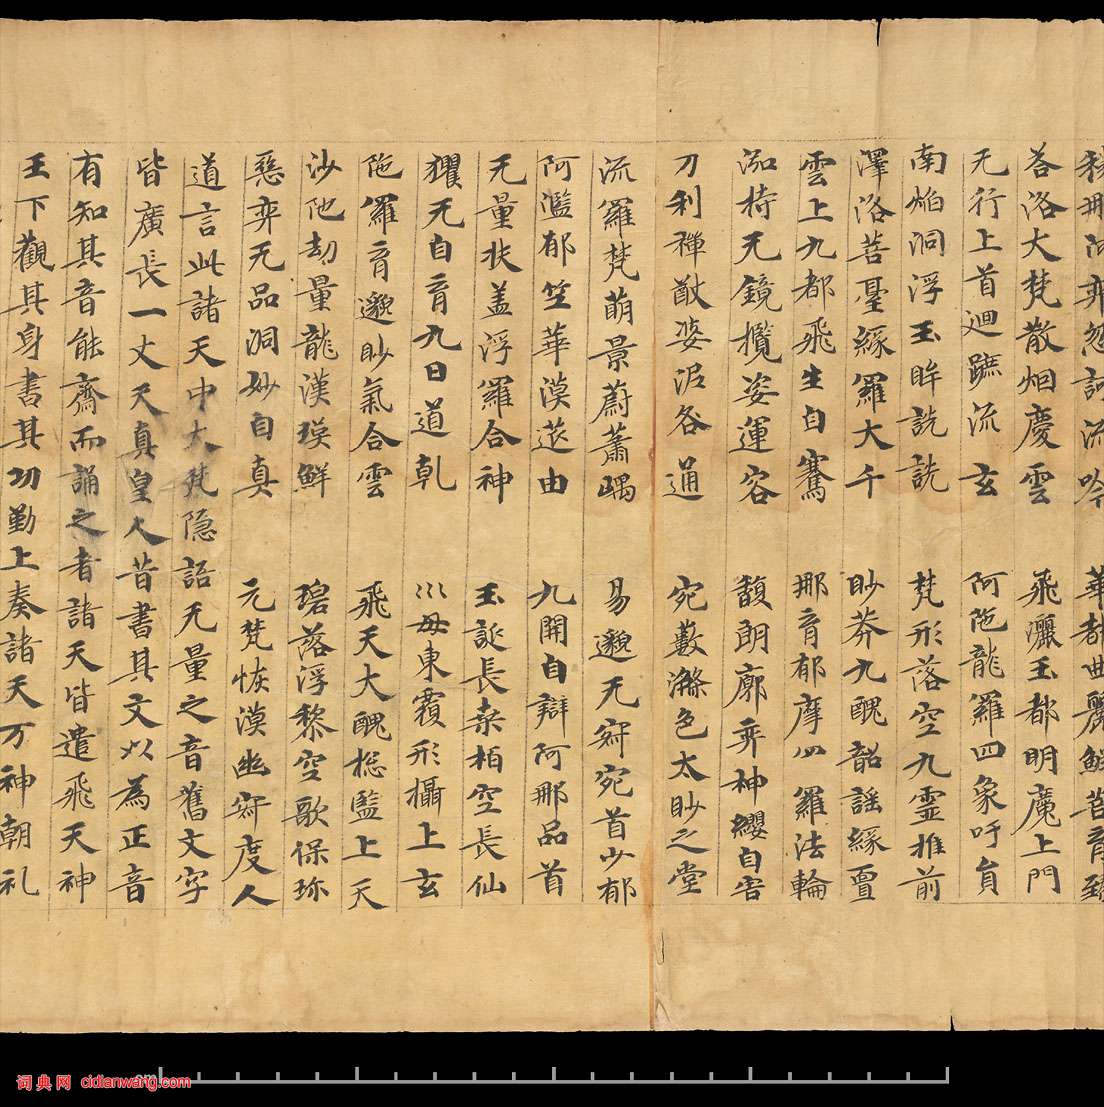 答洛大梵散烟慶雲 飛灑玉都明魔上門
无行上首迴蹠流玄 阿陁龍羅四象吁員
南焰洞浮玉眸詵詵 梵形落空九靈推前
澤洛菩臺緣羅大千 眇莽九醜韶謡緣亶
雲上九都飛生自騫 那育郁摩四羅法輪
泓持无鏡攬姿運容 馥朗廓弈神纓自宫
刀利禪猷婆泥各通 宛藪滌色太眇之堂
流羅梵萌景蔚蕭嵎 易邈无寂宛首少郁
阿濫郁竺華漠莚由 九開自辯阿那品首
无量扶盖浮羅合神 玉誕長桒柏空長仙
玃无自育九日道乹 巛母東覆形攝上玄
陁羅育邈眇氣合雲 飛天大醜揔監上天
沙陁劫量龍漢瑛鮮 碧落浮黎空歌保珎
惡弈无品洞妙自真 元梵恢漠幽寂度人
道言此諸天中大梵隐語无量之音舊文字
皆廣長一丈天真皇人昔書其文以為正音
有知其音能齋而誦之者諸天皆遣飛天神
王下觀其身書其功勤上奏諸天万神朝礼
词典网 cidianwang.com
cm